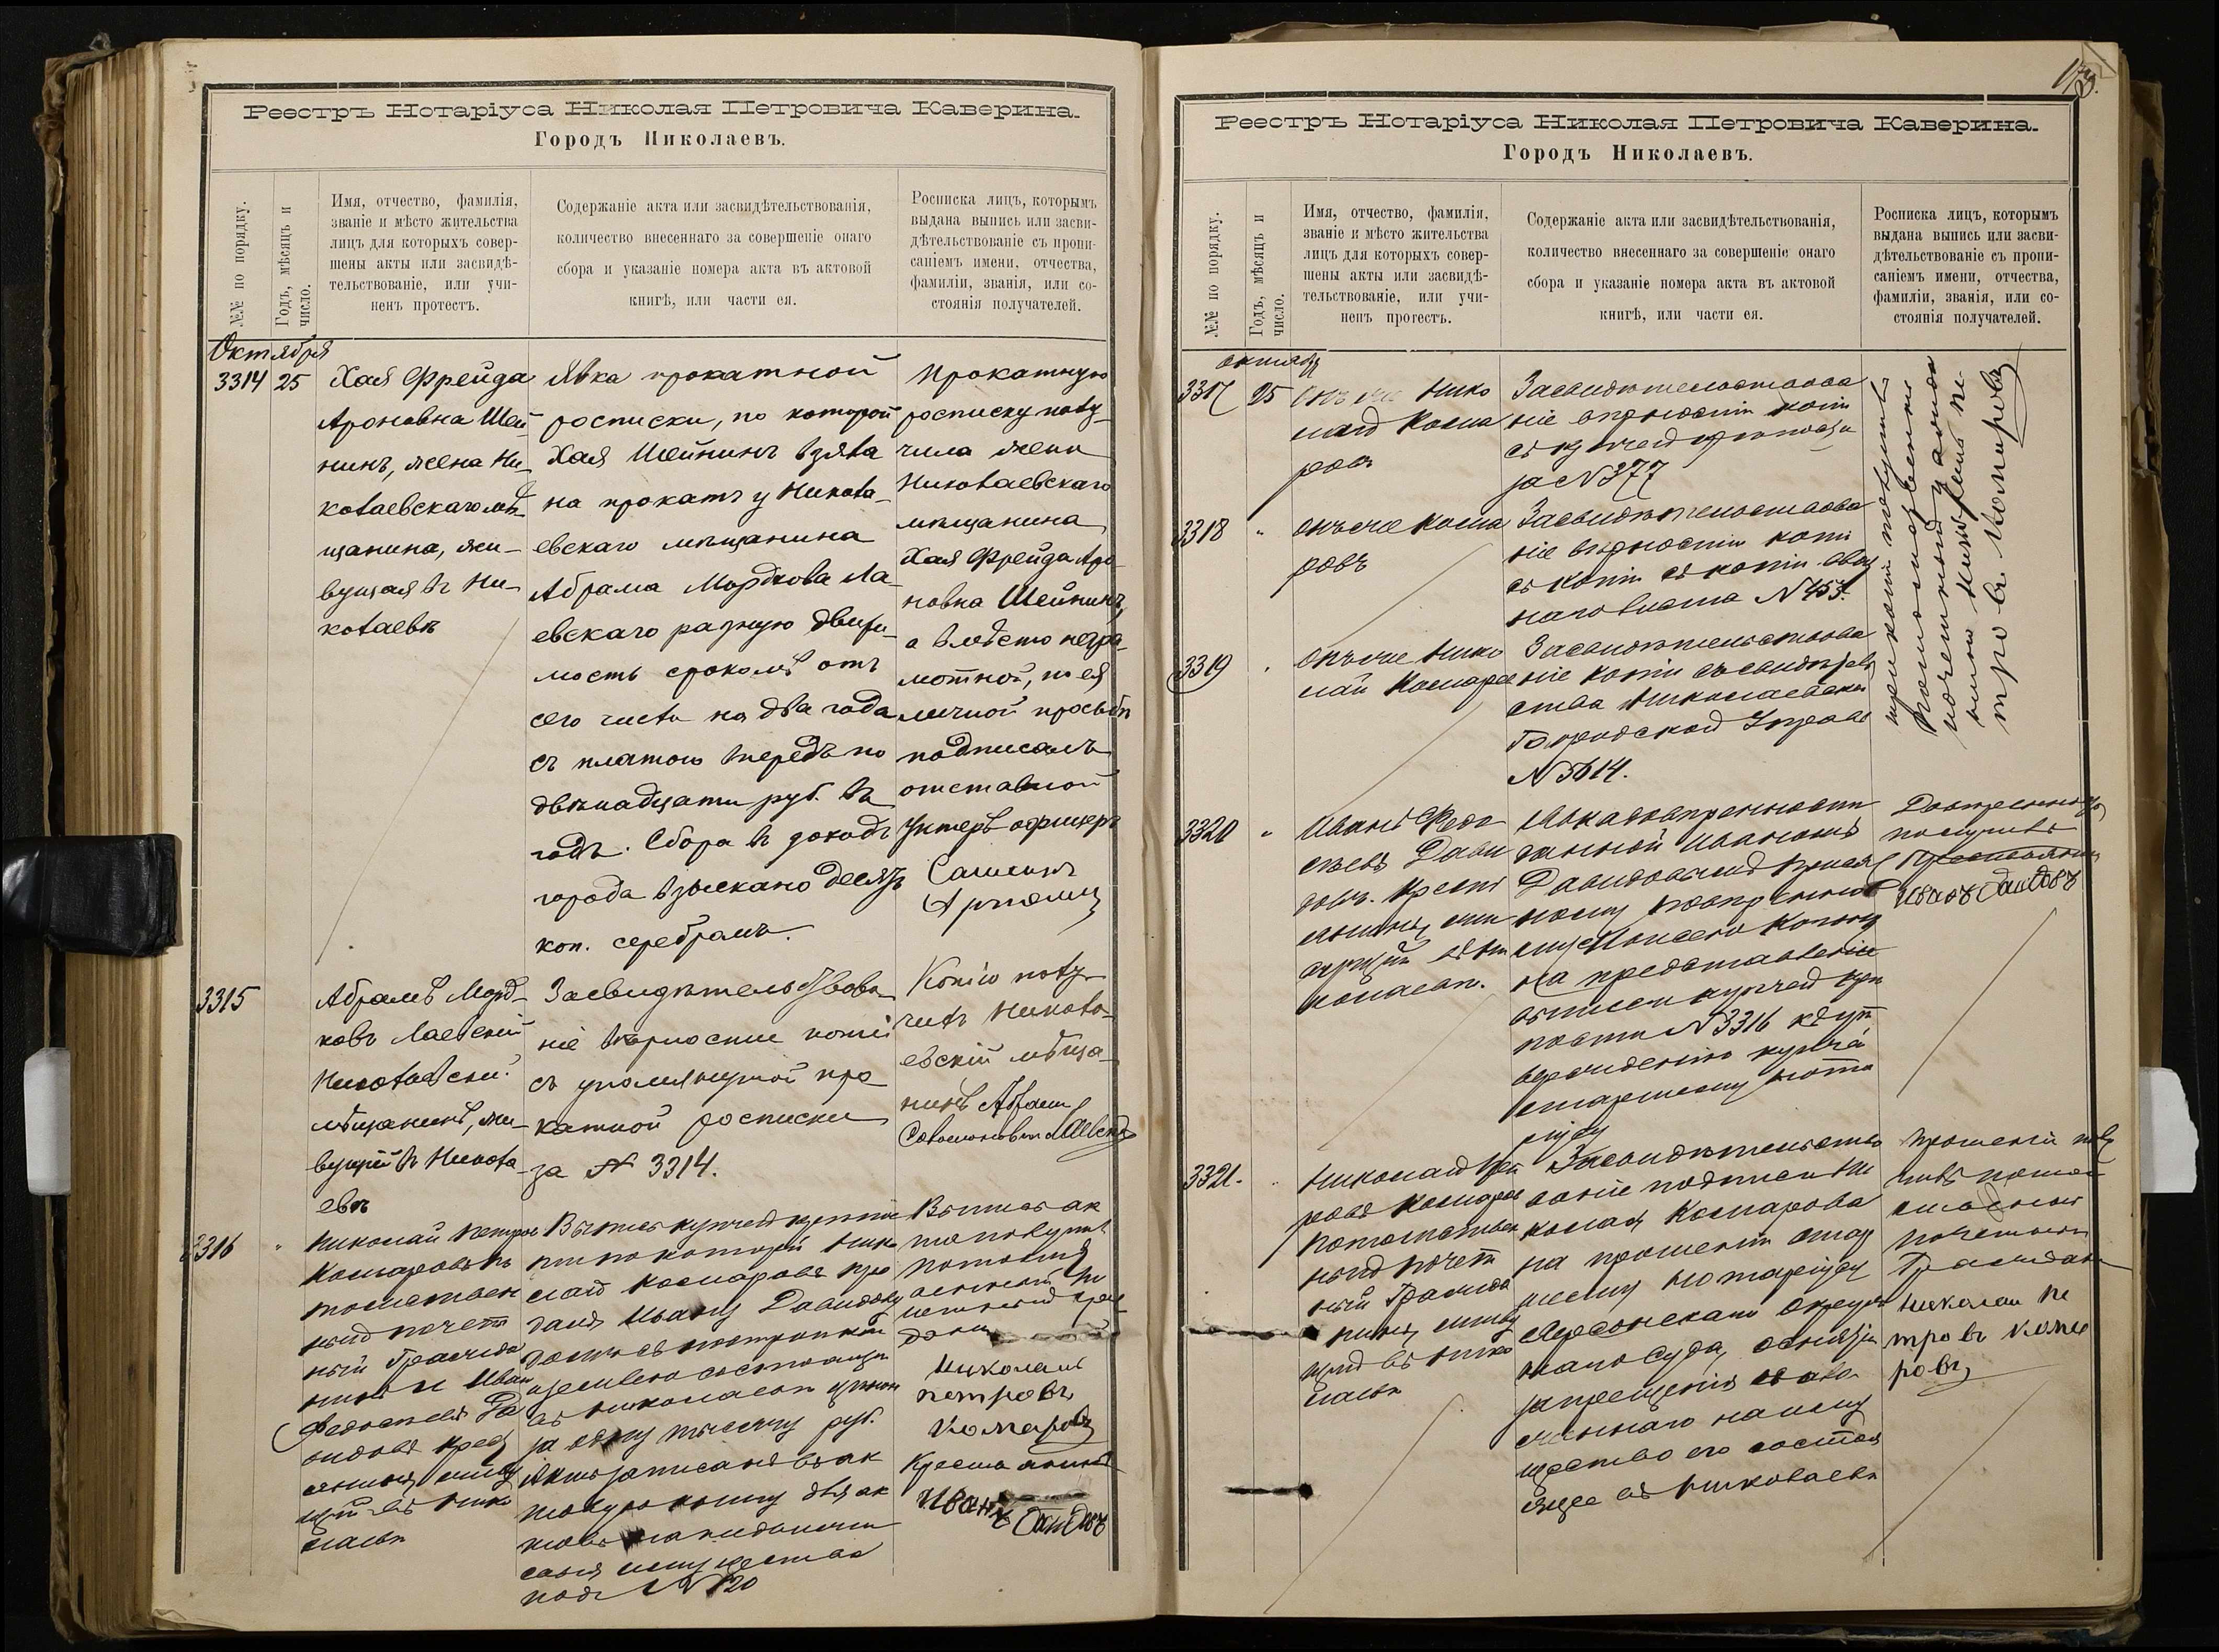 Реестръ Нотаріуса Николая Петровича Каверина.
Городъ Николаевъ.
№№ по порядку.
Годъ, мѣсяцъ и
число.
Имя, отчество, фамилія,
званіе и мѣсто жительства
лицъ для которыхъ совер-
шены акты или засвидѣ-
тельствованіе, или учи-
ненъ протестъ.
Содержаніе акта или засвидѣтельствованія,
количество внесеннаго за совершеніе онаго
сбора и указаніе номера акта въ актовой
книгѣ, или части ея.
Росписка лицъ, которымъ
выдана выпись или засви-
дѣтельствованіе съ пропи-
саніемъ имени, отчества,
фамиліи, званія, или со-
стоянія получателей.
Октября
3314
25
Хая Фрейда
Ароновна Шей
нинъ, жена Ни
колаевскаго мѣ
щанина, жи-
вущая въ Ни-
колаевѣ
Явка прокатной
росписки, по которой
Хая Шейнинъ взяла
на прокатъ у Никола-
евскаго мѣщанина
Абрама Мордкова Ла-
евскаго разную движи-
мость срокомъ отъ
сего числа на два года
съ платою впередъ по
двѣнадцати руб. въ
годъ. Сбора въ доходъ
города взыскано десять
коп. серебромъ.
Прокатную
росписку полу-
чила жена
Николаевскаго
мѣщанина
Хая Фрейда Аро
новна Шейнинъ,
а вмѣсто негра-
мотной, по ея
личной просьбѣ
подписалъ
отставной
Унтеръ офицеръ
3315
Абрамъ Морд-
ковъ Лаевскій
Николаевскій
мѣщанинъ, жи-
вущій въ Никола
евѣ
Засвидѣтельствова
ніе вѣрности копіи
съ упомянутой про
катной росписки
за № 3314.
Копію полу-
чилъ Никола-
евскій мѣща-
нинъ Абрам
3316
"
Николай Петров
Комаровъ по
томствен
ный почет
ный Гражда
нинъ и Иван
Федосеевъ Да
видовъ крест
янинъ, живу
щій въ Нико
лаевѣ
Выпись купчей крѣпо
сти по которой Нико
лай Комаровъ про
далъ Ивану Давидову
домъ съ постройками
и землею состоящій
въ Николаевѣ цѣною
за одну тысячу руб.
Актъ записанъ въ ак
товую книгу для ак
товъ о недвижи
емомъ имуществѣ
подъ № 120
Выпись ак
та получилъ
потомств
енный по
четный граж
данин
Николай
петровъ
Комаровъ
Крестьянинъ
Иванъ Давидовъ
Реестръ Нотаріуса Николая Петровича Каверина.
Городъ Николаевъ.
№№ по порядку.
Годъ, мѣсяцъ и
число.
Имя, отчество, фамилія,
званіе и мѣсто жительства
лицъ для которыхъ совер-
шены акты или засвидѣ-
тельствованіе, или учи-
ненъ протестъ.
Содержаніе акта или засвидѣтельствованія,
количество внесеннаго за совершеніе онаго
сбора и указаніе номера акта въ актовой
книгѣ, или части ея.
Росписка лицъ, которымъ
выдана выпись или засви-
дѣтельствованіе съ пропи-
саніемъ имени, отчества,
фамиліи, званія, или со-
стоянія получателей.
октября
3317
25
Онъ же Нико
лай Кома
ровъ
Засвидѣтельствова
ніе вѣрности копіи
съ купчей крѣпости
за № 377
3318
"
Онъ же Кома
ровъ
Засвидѣтельствова
ніе вѣрности копіи
съ копіи съ копіи
наго листа № 453.
3319
"
Онъ же Нико
лай Комаров
Засвидѣтельствова
ніе копіи съ свидѣтель
ства Николаевской
Городской Управы
№ 5614.
три копіи получилъ
потомственный
почетный гражданин
Николай Пе
тровъ Комаровъ
3320
"
Иванъ Федо
сѣевъ Дави
довъ. Крест
янинъ, жи
вущій въ Ни
колаевѣ.
Явка довѣренности
данной Иваномъ
Давидовымъ присяж
ному повѣренно
му
на представленіе
выписи купчей крѣ
пости № 3316 къ ут
вержденію
старшему нота
ріусу
Довѣренность
получилъ
Крестьянинъ
Иванъ Давидовъ
3321.
"
Николай Пет
ровъ Комаров
Потомствен
ный почет
ный Гражда
нинъ, живу
щій въ Нико
лаевѣ
Засвидѣтельство
ваніе подписи Ни
колая Комарова
на прошеніи стар
шему Нотаріусу
Херсонскаго Окруж
наго суда, о снятіи
запрещенія
имущество его состоя
щее въ Николаевѣ
Прошеніе полу
чилъ потом
ственный
почетный
Гражданин
Николай Пе
тровъ Кома
ровъ